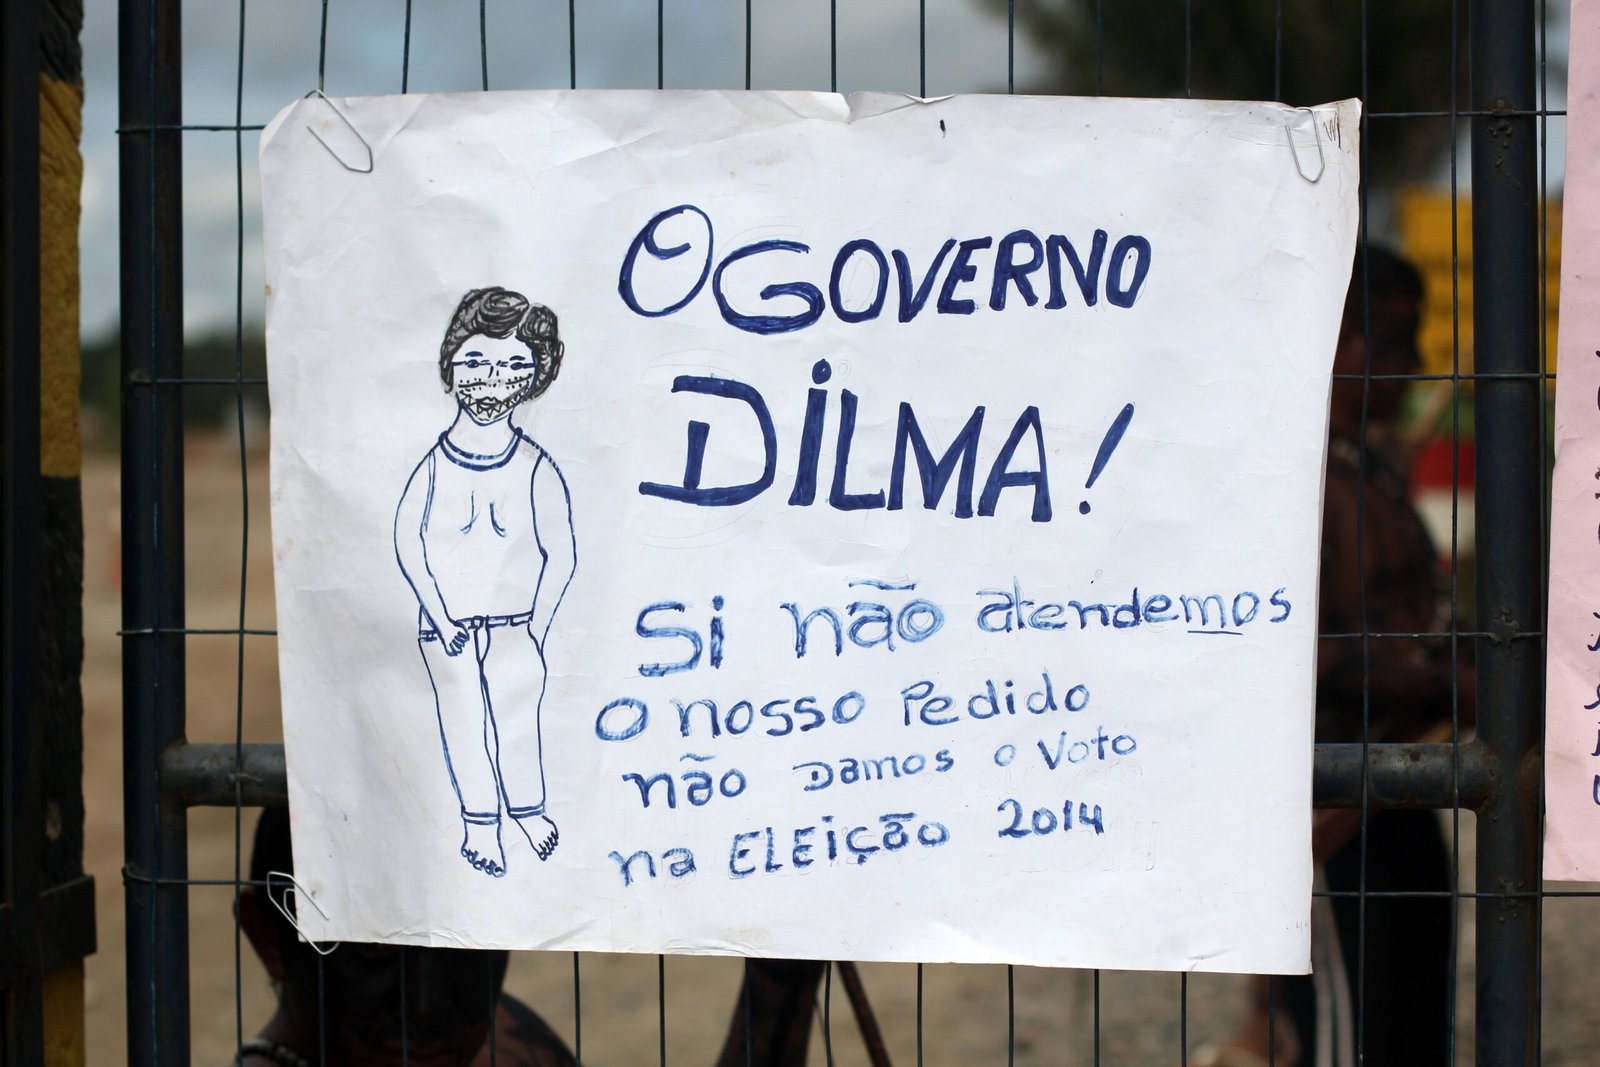 O GOVERNO
DILMA!
Si não atendemos
o nosso Pedido
não Damos o Voto
na ELEIÇÃO 2014